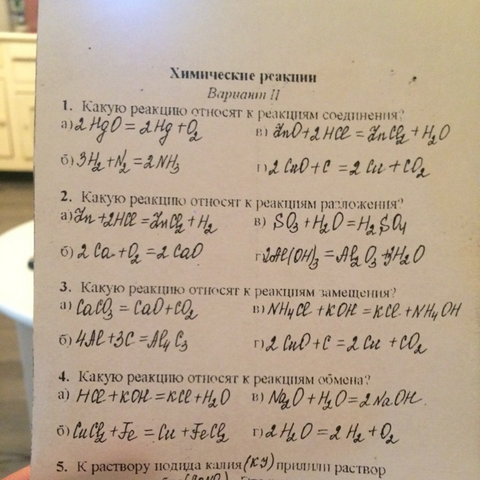 Химические реакции
Вариант II
1. Какую реакцию относят к реакциям соединения?
а) 2HgO = 2Hg + O₂ в) ZnO + 2HCl = ZnCl₂ + H₂O
б) 3H₂ + N₂ = 2NH₃ г) 2CuO + C = 2Cu + CO₂
2. Какую реакцию относят к реакциям разложения?
а) Zn + 2HCl = ZnCl₂ + H₂ в) SO₃ + H₂O = H₂SO₄
б) 2Ca + O₂ = 2CaO г) 2Al(OH)₃ = Al₂O₃ + 3H₂O
3. Какую реакцию относят к реакциям замещения?
а) CaCO₃ = CaO + CO₂ в) NH₄Cl + KOH = KCl + NH₄OH
б) 4Al + 3C = Al₄C₃ г) 2CuO + C = 2Cu + CO₂
4. Какую реакцию относят к реакциям обмена?
а) HCl + KOH = KCl + H₂O в) Na₂O + H₂O = 2NaOH.
б) CuCl₂ + Fe = Cu + FeCl₂ г) 2H₂O = 2H₂ + O₂
5. К раствору иодида калия (KJ) прилили раствор